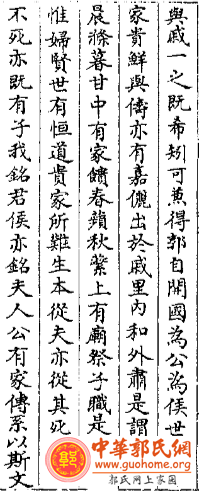 與戚一之既希矧可兼得郭自開國為公為侯世
家貴鮮與儔亦有嘉儷出於戚里内和外肅是謂
晨滌暮甘中有家饋春蘋秋蘩上有廟祭子職是
惟婦賢世有恒道貴家所難生本從夫亦從其死
不死亦既有子我銘君侯亦銘夫人公有家傳系以斯文
中華郭氏網
www.guohome.org
郭氏网上家园